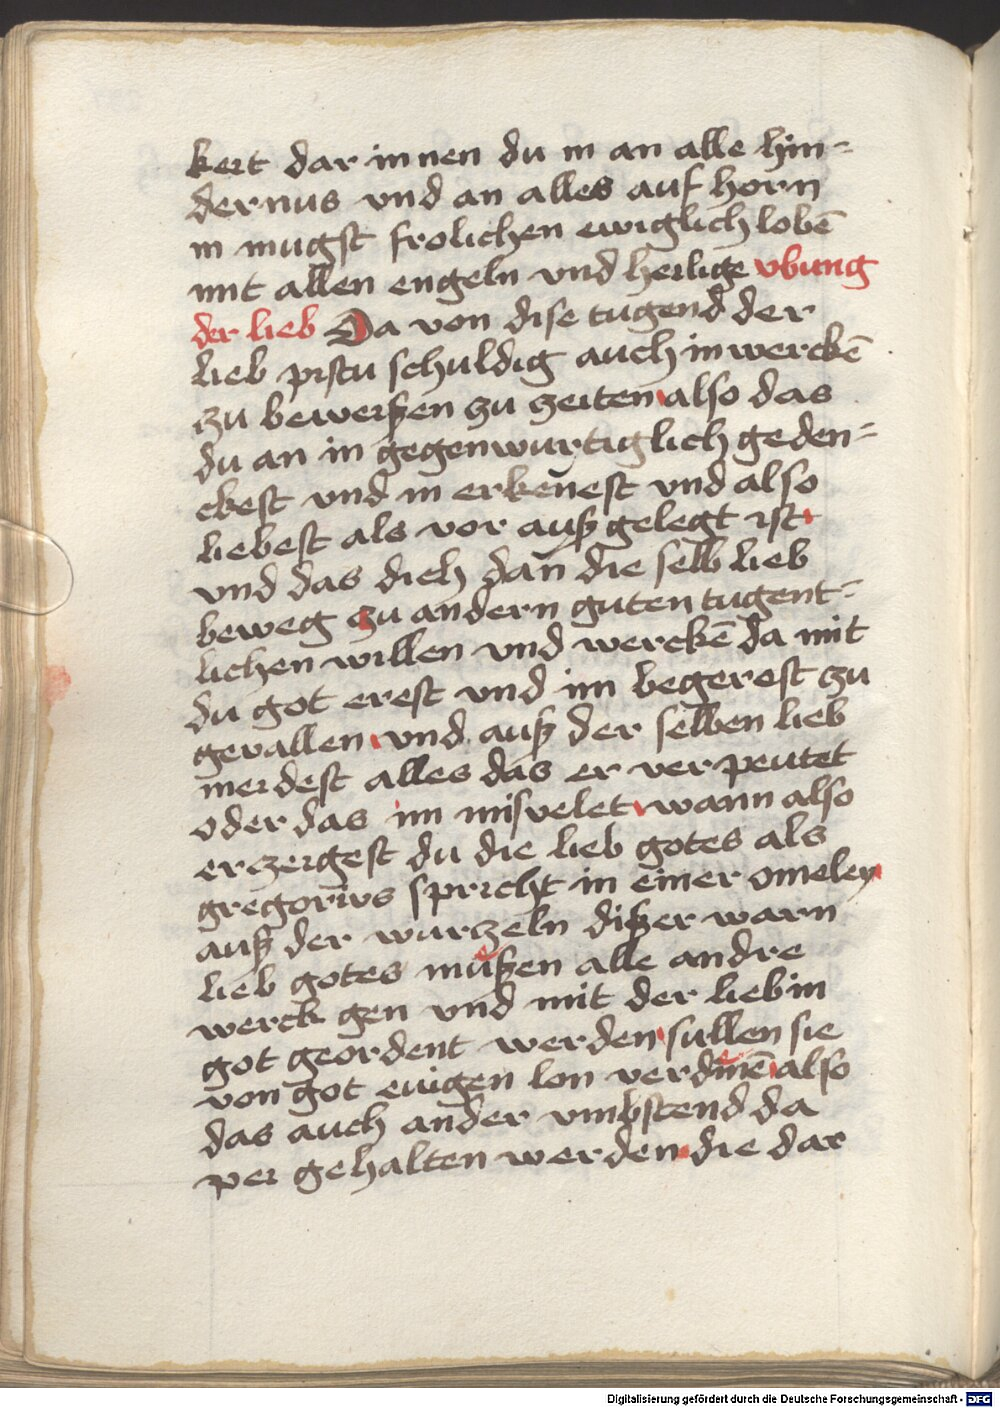 kert dar innen du in an alle hin-
dernus vnd an alles auf horn
in mugst frolichen ewiglich lobē
mit allen engeln vnd heilige vbung
der lieb Da von dise tugend der
lieb pistu schuldig auch in werckē
zu beweißen zu zeiten also das
du an in gegenwurtiglich geden-
ckest vnd in erkēnest vnd also
liebest als vor auß gelegt ist
vnd das dich dan̄ die selb lieb
beweg zu andern guten tugent-
lichen willen vnd werckē da mit
du got erest vnd im begerest zu
gevallen vnd auß der selben lieb
meidest alles das er verpeutet
oder das im misvelet wann also
erzeigest du die lieb gotes als
gregorius spricht in einer omeley
auß der wurzeln dißer warn
lieb gotes mußen alle andre
werck gen vnd mit der lieb in
got geordent werden sullen sie
von got ewigen lon verdinē also
das auch ander vmbstend da
pei gehalten werden die dar
Digitalisierung gefördert durch die Deutsche Forschungsgemeinschaft - DFG